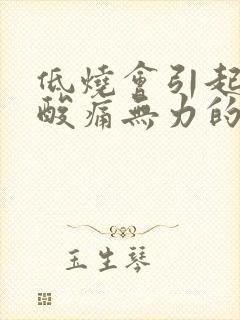 低燒會引起
酸痛無力的
玉生琴